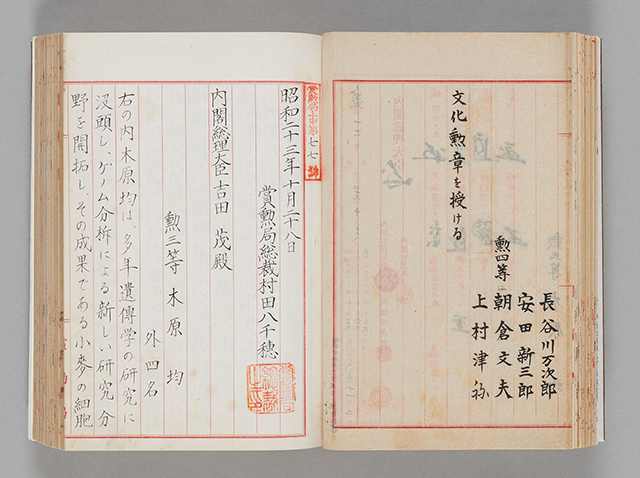 長谷川万次郎
安田新三郎
勲四等 朝倉文夫
上村津祢
文化勲章を授ける
七七
昭和二十三年十月二十八日
賞勲局総裁村田八千穂
内閣総理大臣吉田茂殿
勲三等 木原均
外四名
右の内木原均は、多年遺傳学の研究に
没頭し、ゲノム分析による新しい研究分
野を開拓し、その成果である小麥の細胞